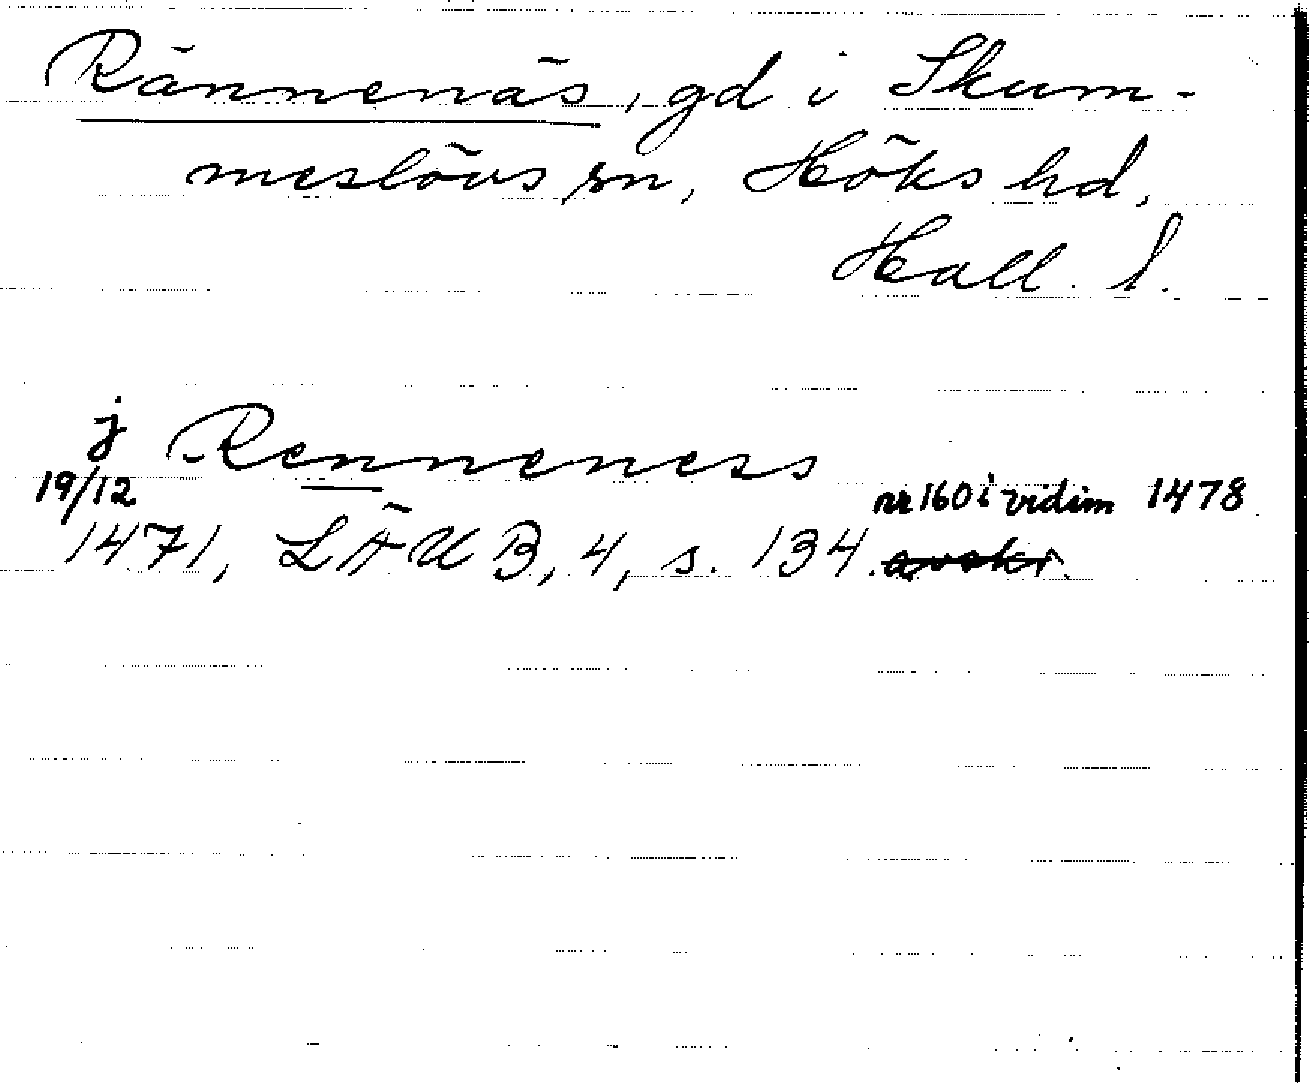 Rännenäs, gd i Skum-
meslövs sn, Höks hd,
Hall. l.
j Renneness
19/12 nr 160 i vidim 1478
1471, LÄUB, 4, s. 134. avskr.